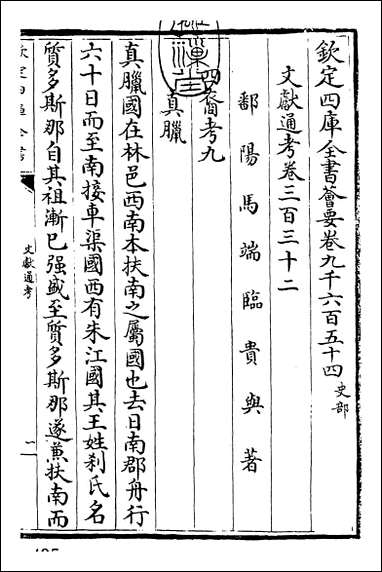 欽定四庫全書薈要卷九千六百五十四 史部
文獻通考卷三百三十二
鄱陽馬端臨貴與著
四裔考九
真臘
真臘國在林邑西南本扶南之屬國也去日南郡舟行
六十日而至南接車渠國西有朱江國其王姓刹氏名
質多斯那自其祖漸已强盛至質多斯那遂兼扶南而
文獻通考